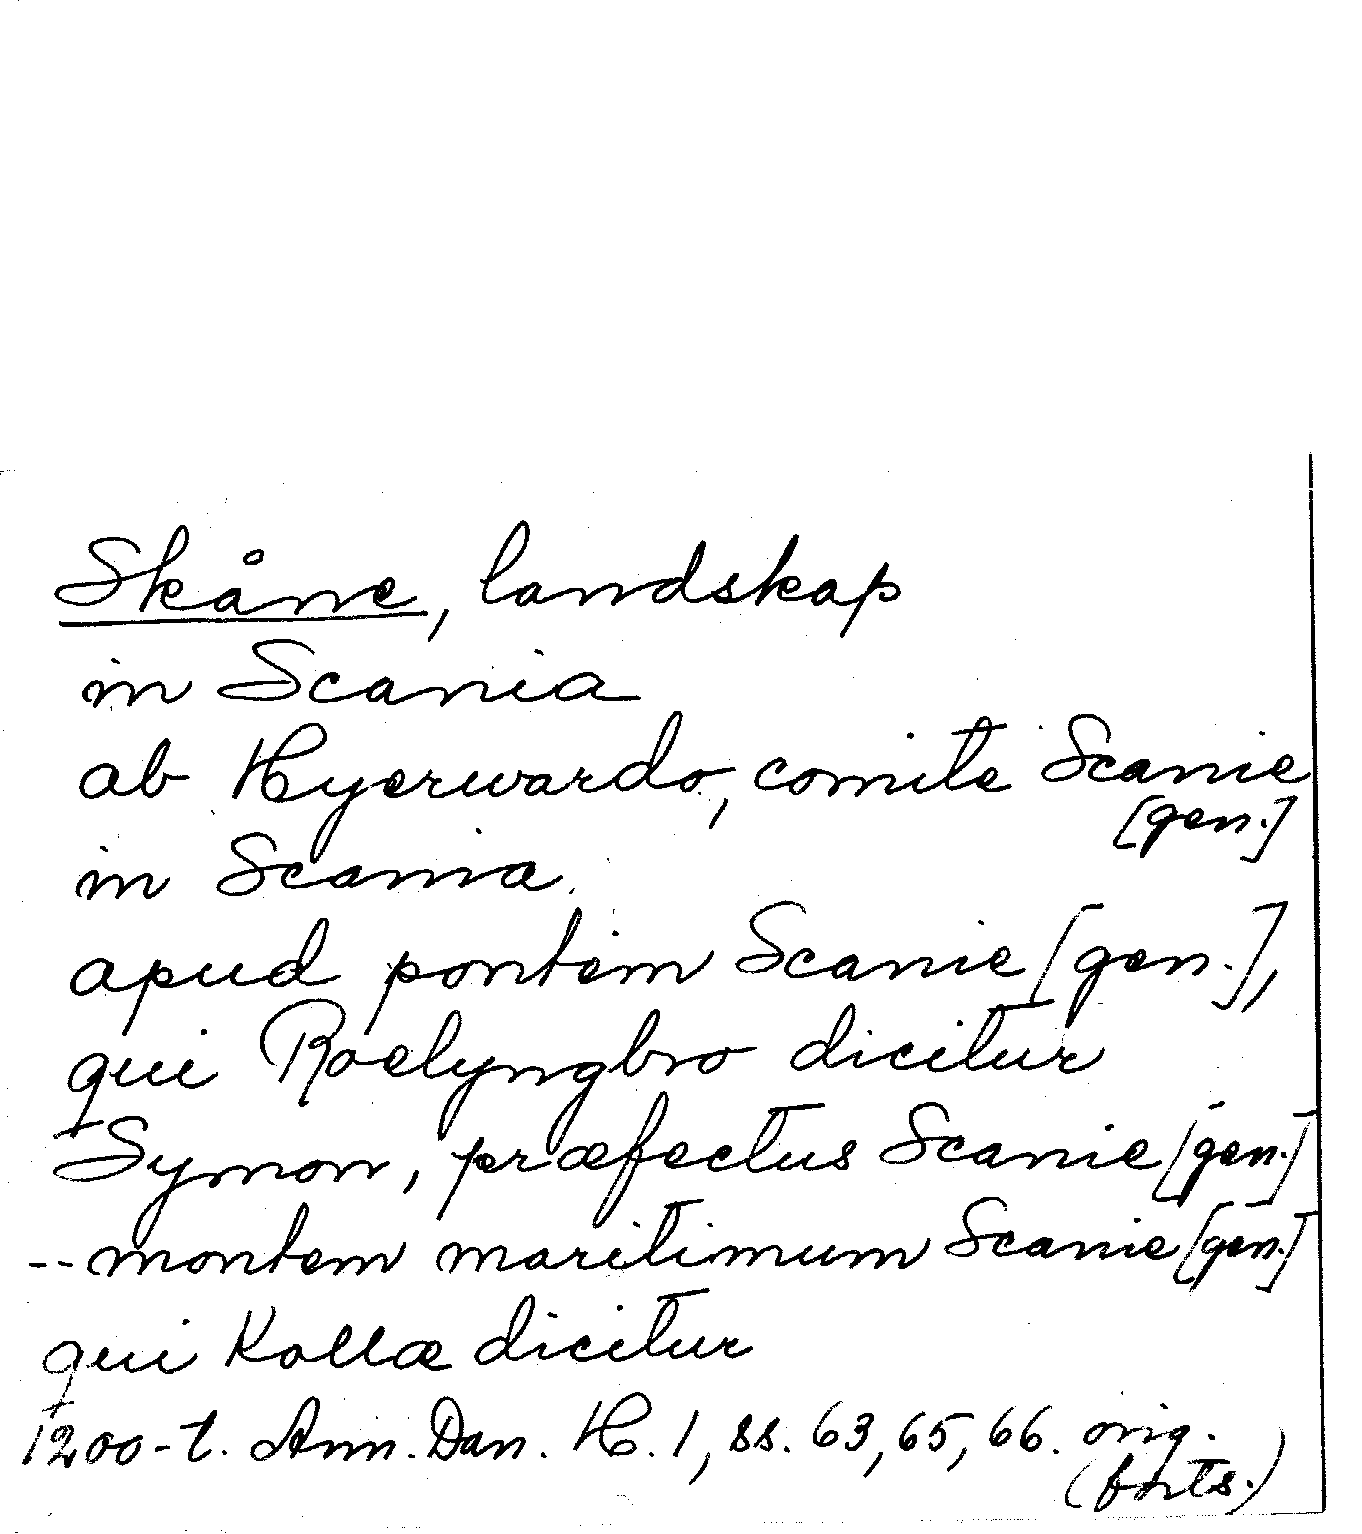 Skåne, landskap
in Scania
ab Hyerwardo, comite Scanie
[gen.]
in Scania
apud pontem Scanie [gen.],
qui Roelyngbro dicitur
Symon, præfectus Scanie [gen.]
-- montem maritimum Scanie [gen.]
qui Kollæ dicitur
1200-t. Ann. Dan. H. 1, ss. 63, 65, 66. orig.
(forts.)